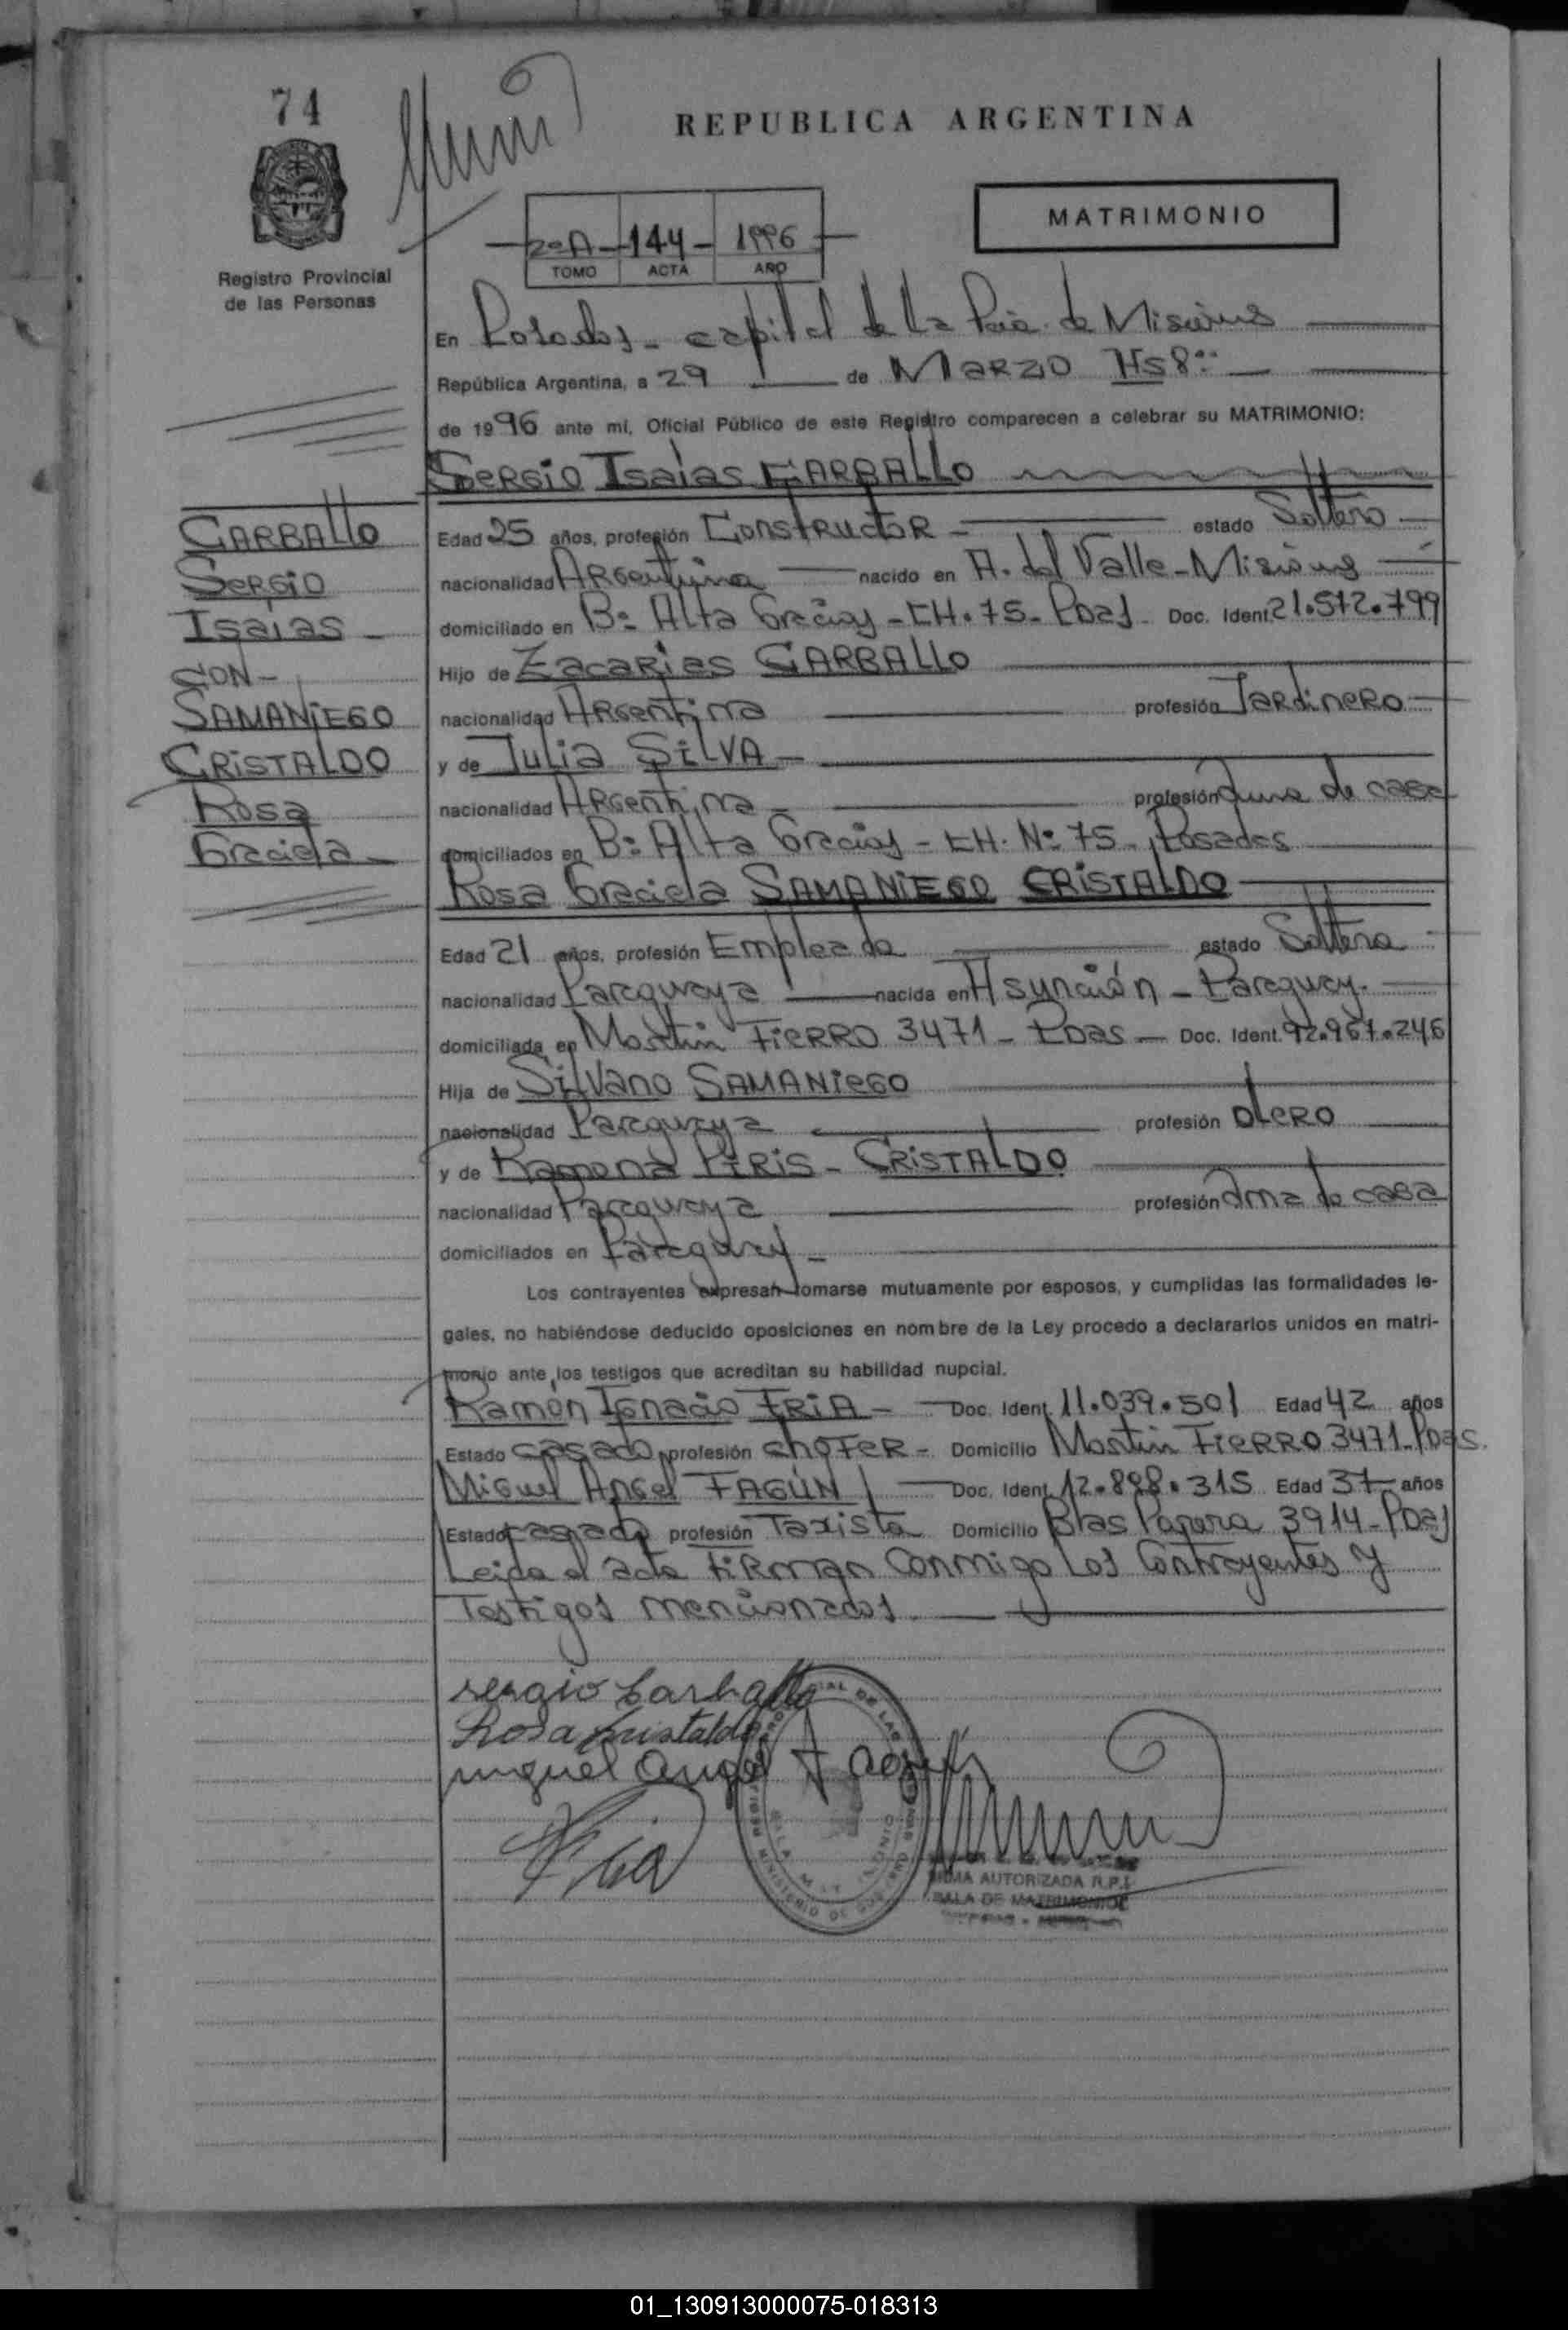 74
REPUBLICA ARGENTINA
MATRIMONIO
2º A - 144 - 1996
TOMO ACTA AÑO
Registro Provincial
de las Personas
En Posadas - capital de la Pcia. de Misiones
República Argentina, a 29 de MARZO Hs 8:
de 1996 ante mi, Oficial Público de este Registro comparecen a celebrar su MATRIMONIO:
Sergio Isaías CARBALLO
CARBALLO
Sergio
Isaías -
CON -
SAMANIEGO
CRISTALDO
Rosa
Graciela -
Edad 25 años, profesión Constructor - estado Soltero
nacionalidad Argentina nacido en A. del Valle - Misiones
domiciliado en Bº Alta Gracias - CH. 75 - Pdas - Doc. Ident. 21.572.799
Hijo de Zacarias CARBALLO
nacionalidad Argentina profesión Jardinero
y de Julia SILVA -
nacionalidad Argentina - profesión Ama de casa
domiciliados en Bº Alta Gracias - CH. Nº 75 - Posadas
Rosa Graciela SAMANIEGO CRISTALDO
Edad 21 años, profesión Empleada estado Soltera
nacionalidad Paraguaya nacida en Asunción - Paraguay.
domiciliada en Martin Fierro 3471 - Pdas - Doc. Ident. 92.967.246
Hija de Silvano SAMANIEGO
nacionalidad Paraguaya profesión Olero
y de Ramona PIRIS - CRISTALDO
nacionalidad Paraguaya profesión Ama de casa
domiciliados en Paraguay -
Los contrayentes expresan tomarse mutuamente por esposos, y cumplidas las formalidades le-
gales, no habiéndose deducido oposiciones en nombre de la Ley procedo a declararlos unidos en matri-
monio ante los testigos que acreditan su habilidad nupcial.
Ramón Ignacio FRIA - Doc. Ident. 11.039.501 Edad 42 años
Estado Casado profesión choFer - Domicilio Martin Fierro 3471 - Pdas.
Miguel Angel FAGÚN Doc. Ident. 12.898.315 Edad 37 años
Estado Casado profesión Taxista Domicilio Blas Parera 3914 - Pdas
Leida el acta Firman Conmigo Los Contrayentes y
Testigos mencionados.
sergio Carballo
Rosa Cristaldo
miguel Angel Fagun
Fria
FIRMA AUTORIZADA R.P.
SALA DE MATRIMONIOS
01_130913000075-018313